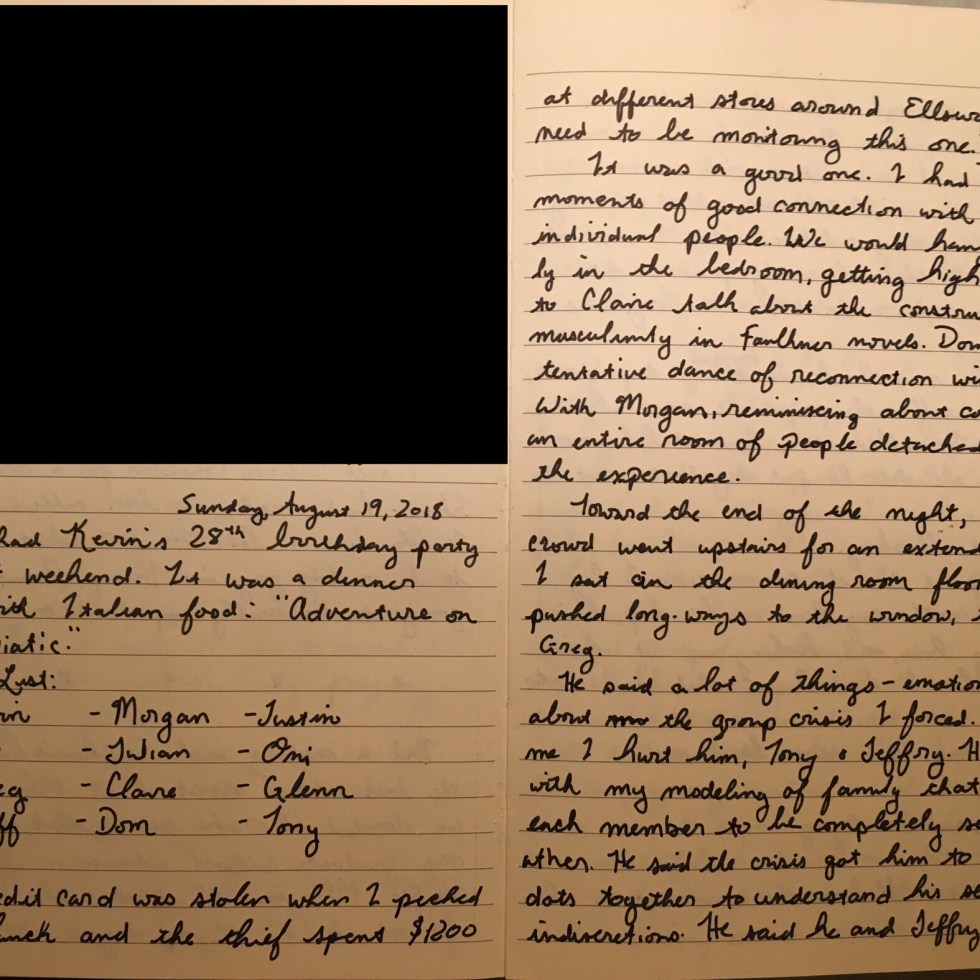 Sunday, August 19, 2018
had Kevin's 28th birthday party
weekend. It was a dinner
with Italian food: "Adventure on
iatic."
List:
- Morgan - Justin
- Julian - Omi
- Claire - Glenn
- Dom - Tony
edit card was stolen when I parked
and the thief spent $1200
at different stores around Ellswo
need to be monitoring this one.
It was a good one. I had
moments of good connection with
individual people. We would
ly in the bedroom, getting high
to Claire talk about the constru
masculinity in Faulkner novels. Dom
tentative dance of reconnection wi
With Morgan, reminiscing about co
an entire room of people detached
the experience.
Toward the end of the night,
crowd went upstairs for an extend
I sat in the dining room floor
pushed long-ways to the window,
Greg.
He said a lot of things - emotion
about the group crisis I forced.
me I hurt him, Tony & Jeffry. H
with my modeling of family that
each member to be completely se
other. He said the crisis got him to
dots together to understand his se
indiscretions. He said he and Jeffry